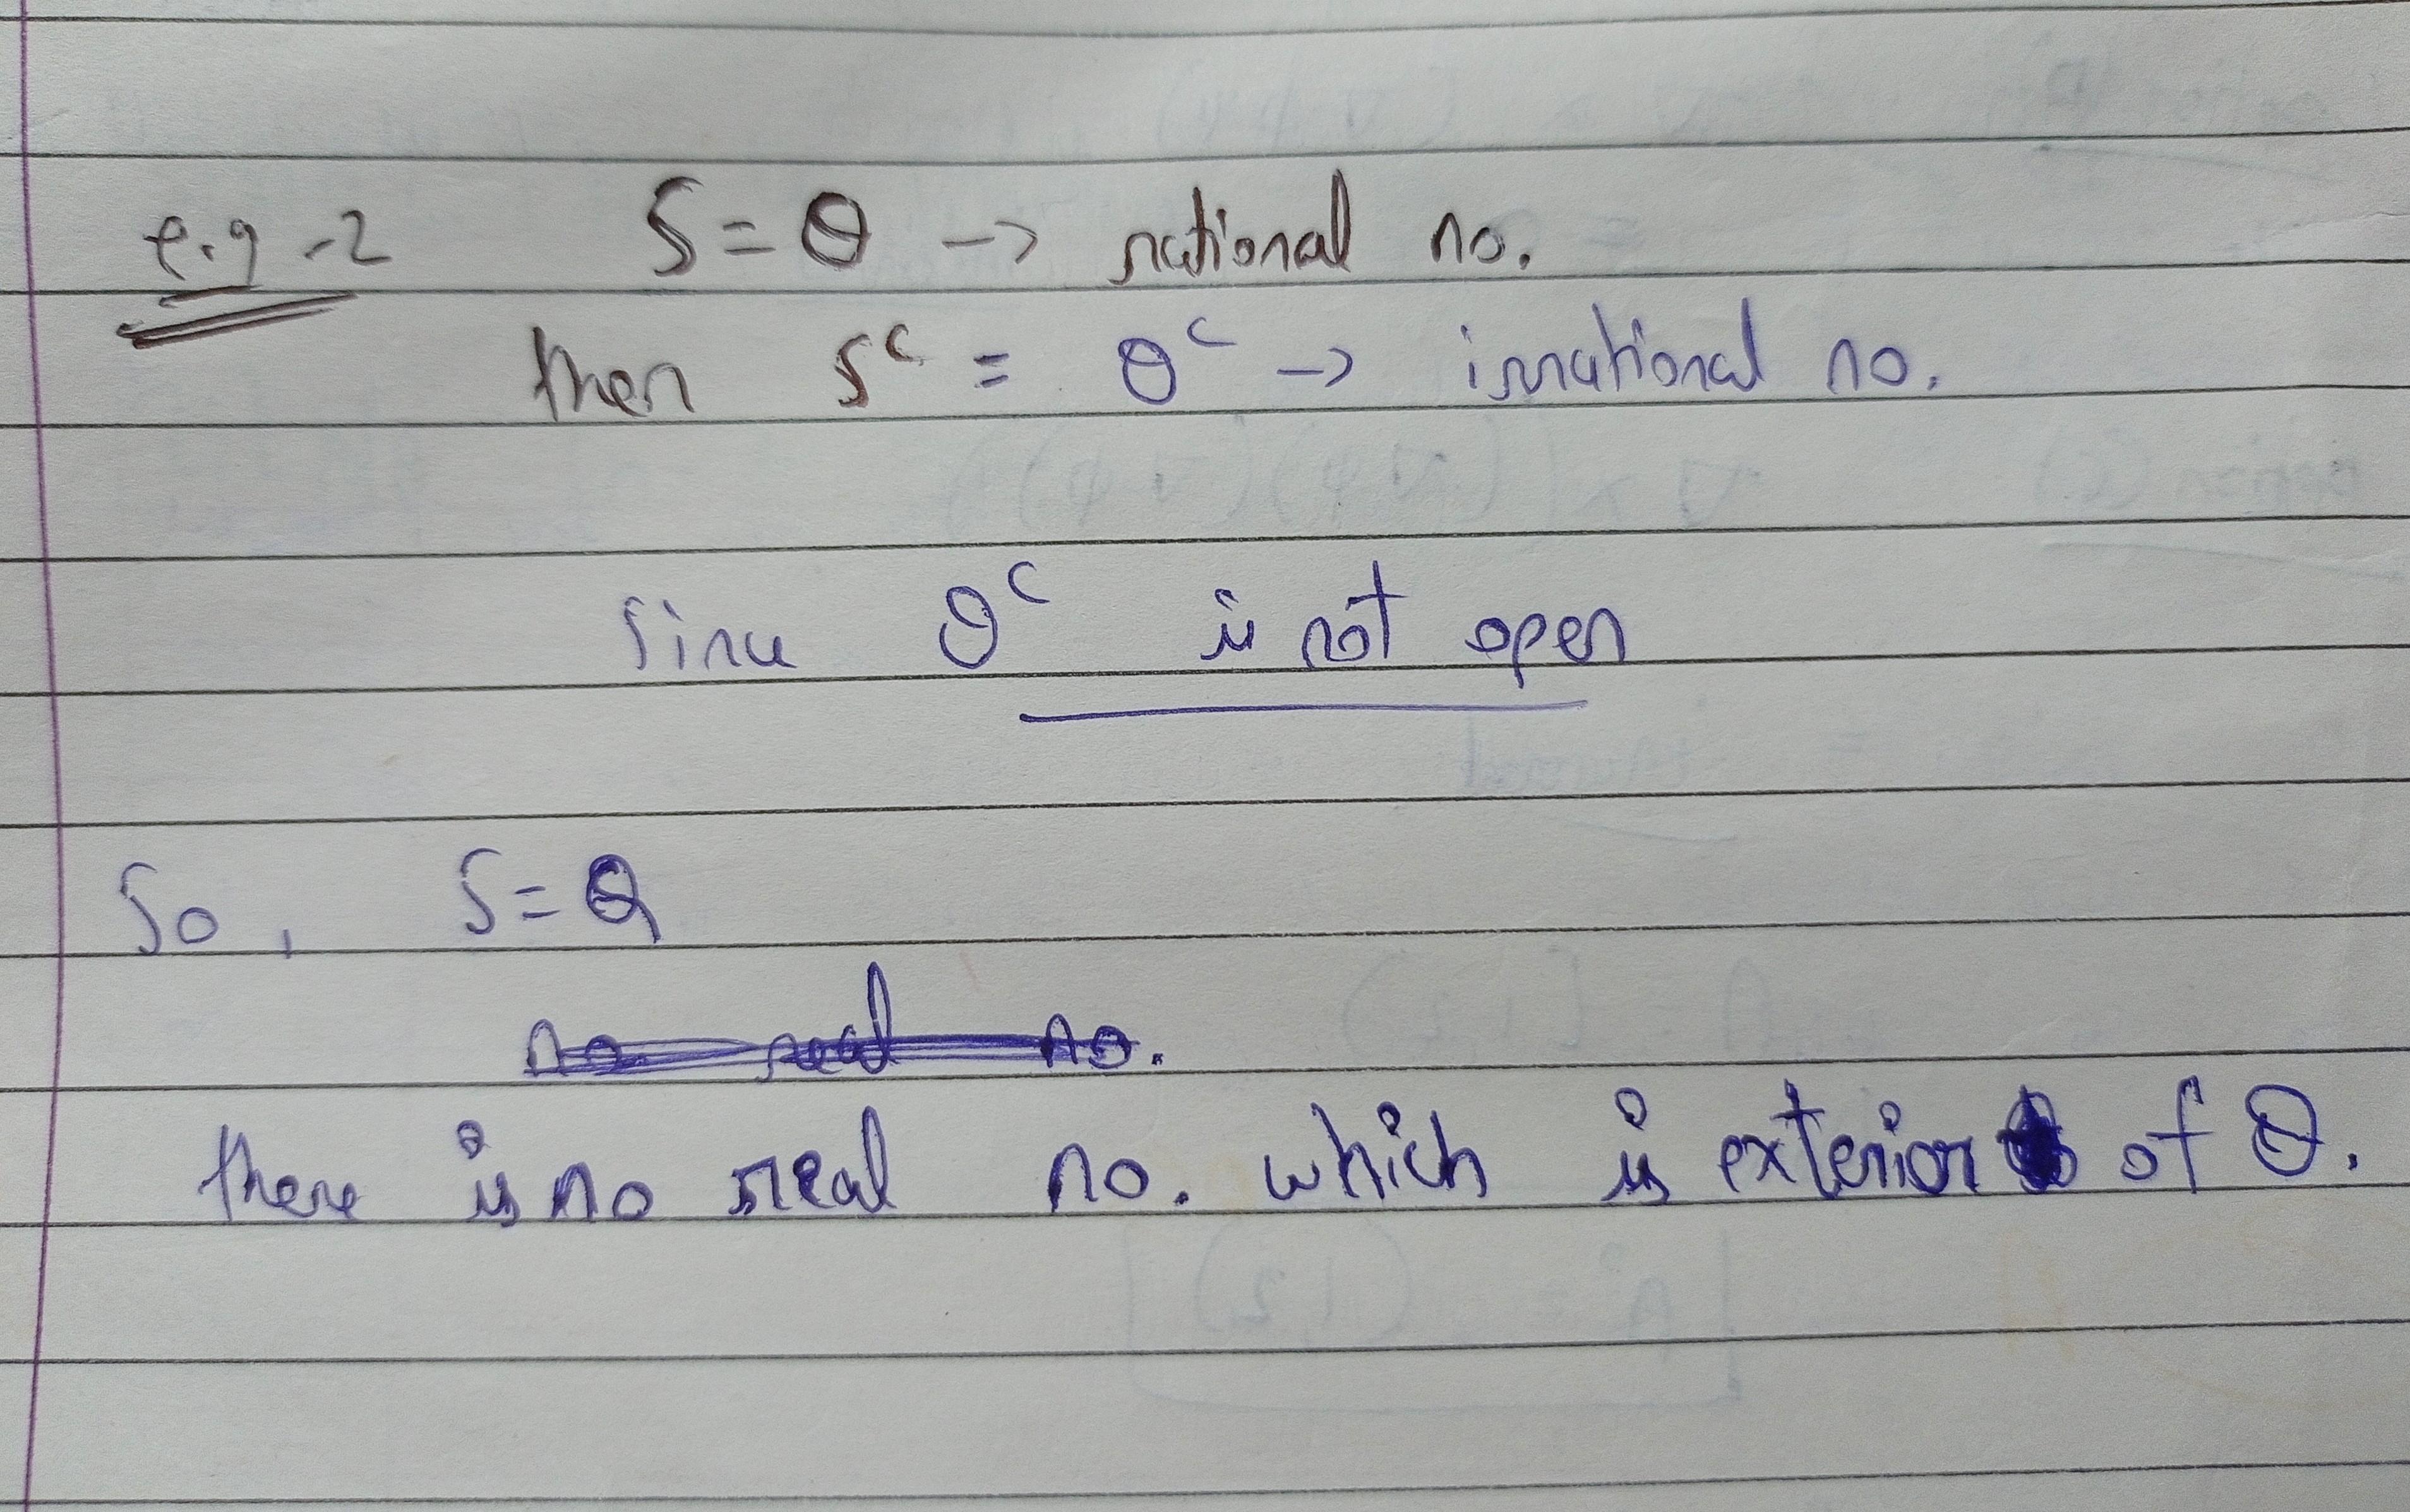 e.g -2 S = Q -> rational no.
then S^c = Q^c -> irrational no.
Since Q^c is not open
So, S = Q
no real no.
there is no real no. which is exterior of Q.